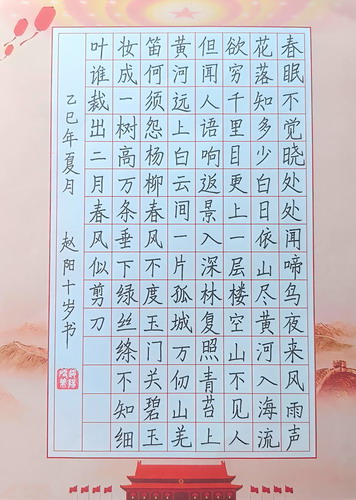 春眠不觉晓处处闻啼鸟夜来风雨声
花落知多少白日依山尽黄河入海流
欲穷千里目更上一层楼空山不见人
但闻人语响返景入深林复照青苔上
黄河远上白云间一片孤城万仞山羌
笛何须怨杨柳春风不度玉门关碧玉
妆成一树高万条垂下绿丝绦不知细
叶谁裁出二月春风似剪刀
乙巳年夏月 赵阳十岁书